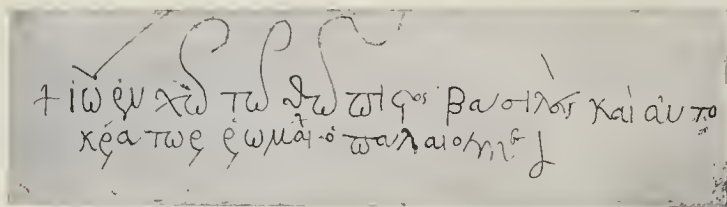 + ἰω ἐν χῶ τῶ θῶ πιστὸς βασιλεὺς καὶ αὐτο
κράτωρ ῥωμαί ὁ παλαιολόγος